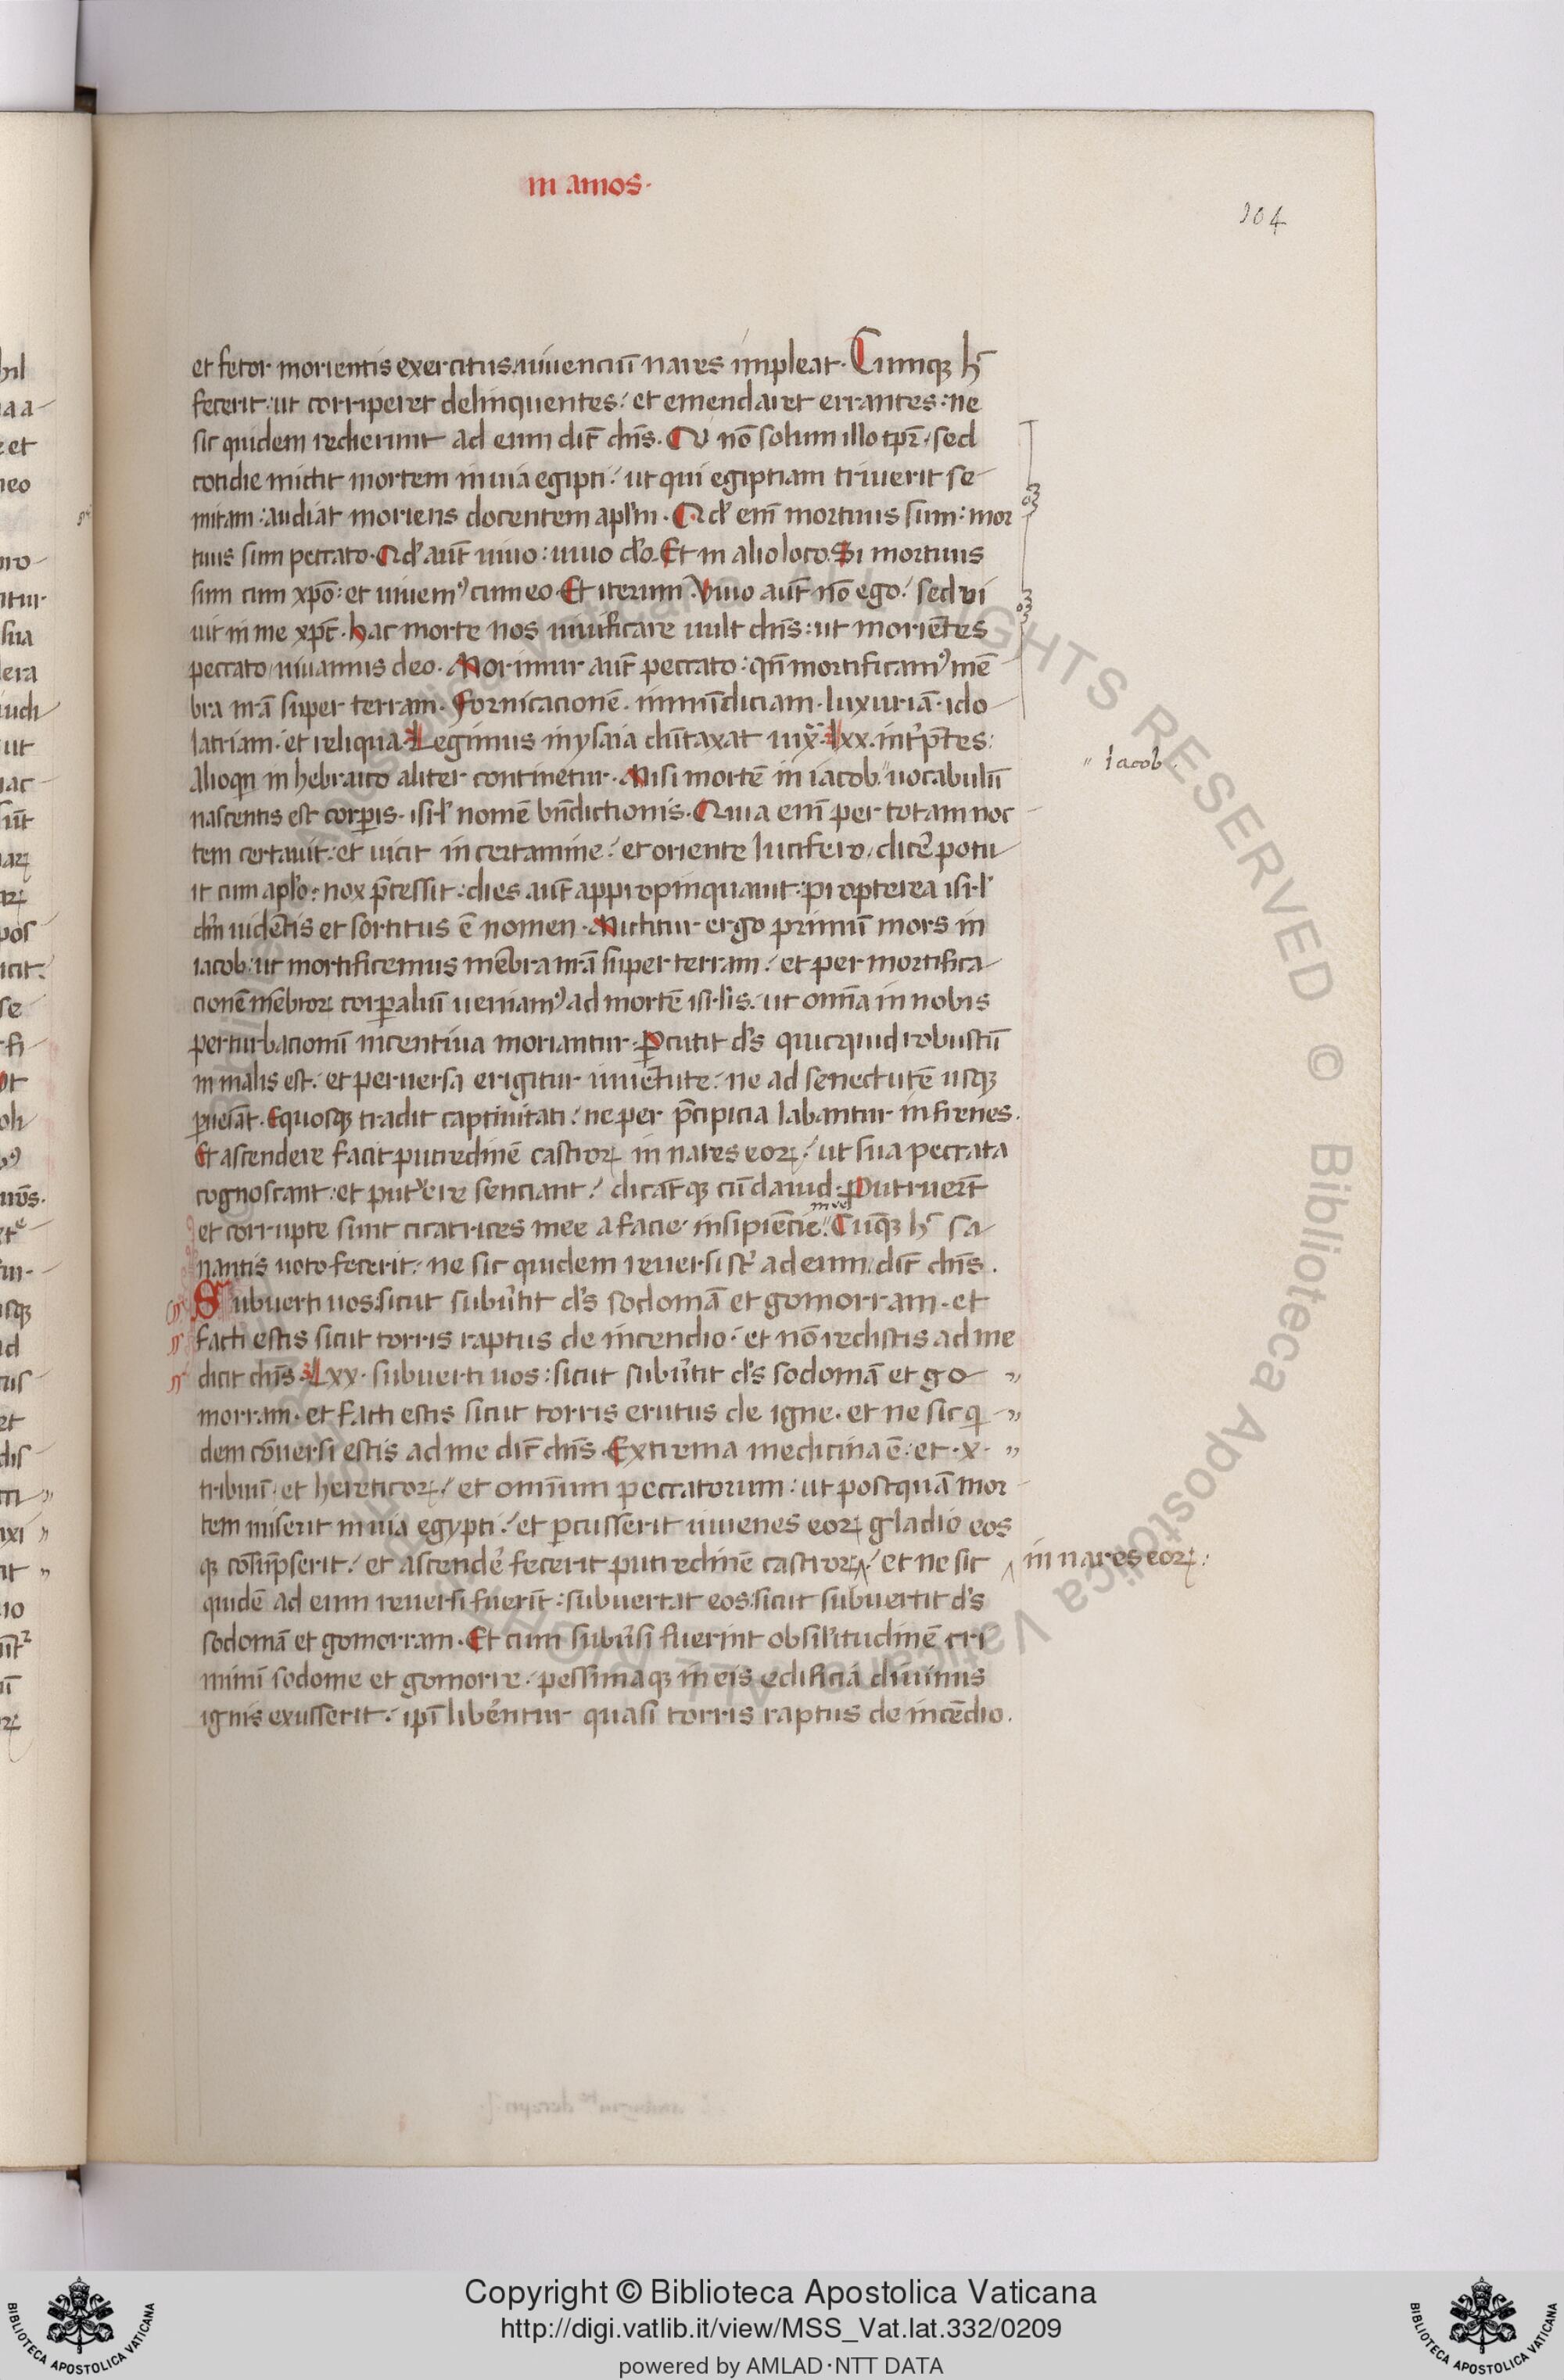 in amos·
104
et fetor morientis exercitus: uiuenciū nares impleat· Cumqꝫ h̄
fecerit: ut corriperet delinquentes: et emendaret errantes: ne
sic quidem redierunt ad eum dic̄ dn̄s. Qͥ nō solum illo tp̄r: sed
cotidie mictit mortem in uia egipti: ut qui egiptiam triuerit se
mitam: audiat moriens docentem apl̄m. Qd̓ eni᷒ mortuus sum: mor
tuus sum peccato. Qd̓ aut̄ uiuo: uiuo do̓. Et in alio loco. Si mortuus
sum cum xp̄o: et uiuemꝰ cum eo. Et iterum. Viuo aut̄ nō ego: sed vi
uit in me xp̄c. hac morte nos uiuificare uult dn̄s: ut moriētes
peccato uiuamus deo. Morimur aut̄ peccato: qn̄ mortificamꝰ mē
bra nr̄a super terram. Fornicacionē. inmūdiciam. luxuriā. ido
latriam. et reliqua. Legimus in ysaia dūtaxat iuxͣ. lxx. int̓p̄tes:
Alioqn̄ in hebraico aliter continetur. Misi mortē in iacob. uocabulū
nascentis est corꝑis. isrl̓ nomē bn̄dictionis. Quia eni᷒ per totam noc
tem certauit: et uicit in certamine: et oriente lucifero, dicer̓ potu
it cum aplo̓: nox p̄cessit: dies aut̄ appropinquauit: propterea isrl̓
dm̄ uidētis et sortitus ē nomen. Mictitur ergo primū mors in
iacob: ut mortificemus mēbra nr̄a super terram: et per mortifica
cionē mēbroꝝ corꝑaliū ueniamꝰ ad mortē isrl̓is. ut omīa in nobis
perturbacionū incentiua moriantur. Ꝑcutit ds̓ quicquid robustū
in malis est. et peruersa erigitur iuuētute. ne ad senectutē usqꝫ
ꝑueīat. Equosqꝫ tradit captiuitati: ne per p̄cipicia labantur infrenes.
Et ascendere facit putredinē castroꝝ in nares eoꝝ: ut sua peccata
cognoscant: et putrere senciant: dicātqꝫ cū dauid. Putruer̄t
et corrupte sunt cicatrices mee a facie insipiēcie mee. Cūqꝫ h̄ sa
nantis uoto fecerit: ne sic quidem reuersi st̓ ad eum, dic̄ dn̄s.
Subuerti uos: sicut subu̓tit ds̓ sodomā et gomorram. et
facti estis sicut torris raptus de incendio: et nō redistis ad me
dicit dn̄s. Lxx. subuerti uos: sicut subu̓tit ds̓ sodomā et go
morram. et facti estis sicut torris erutus de igne. et ne sic qͥ
dem cōuersi estis ad me dic̄ dn̄s. Extrema medicina ē: et .x.
tribuū. et hereticoꝝ: et omnium peccatorum: ut postquā mor
tem miserit in uia egypti: et ꝑcusserit iuuenes eoꝝ gladio eos
qꝫ cōsūpserit: et ascendēr̓ fecerit putredinē castroꝝ: et ne sic
quidē ad eum reuersi fuerīt: subuertat eos: sicut subuertit ds̓
sodomā et gomorram. Et cum subu̓si fuerint ob sil̓itudinē cri
minū sodome et gomorre. pessimaqꝫ in eis edificia diuinus
ignis exusserit: ip̄i liber̓ntur quasi torris raptus de incēdio.
Iacob.
in nares eoꝝ.
Copyright © Biblioteca Apostolica Vaticana
http://digi.vatlib.it/view/MSS_Vat.lat.332/0209
powered by AMLAD·NTT DATA